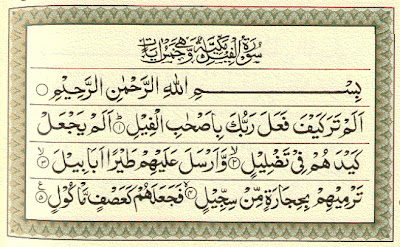 سُوْرَةُ الْفِيْلِ مَكِّيَّةٌ وَّهِيَ خَمْسُ اٰيَاتٍ
بِسْمِ اللّٰهِ الرَّحْمٰنِ الرَّحِيْمِ ○
اَلَمْ تَرَ كَيْفَ فَعَلَ رَبُّكَ بِاَصْحٰبِ الْفِيْلِ ۱ اَلَمْ يَجْعَلْ
كَيْدَهُمْ فِيْ تَضْلِيْلٍ ۲ وَّاَرْسَلَ عَلَيْهِمْ طَيْرًا اَبَابِيْلَ ۳
تَرْمِيْهِمْ بِحِجَارَةٍ مِّنْ سِجِّيْلٍ ۴ فَجَعَلَهُمْ كَعَصْفٍ مَّاْكُوْلٍ ۵